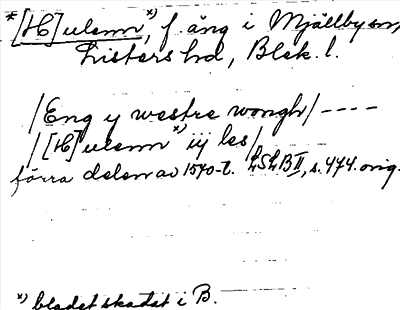 *[H]ulenn*), f. äng i Mjällby sn,
Listers hd, Blek. l.
/Eng y westre wongh/ ----
/[H]ulenn*) iij les/
förra delen av 1540-t. LSLB II, s. 474. orig.
*) bladet skadat i B.